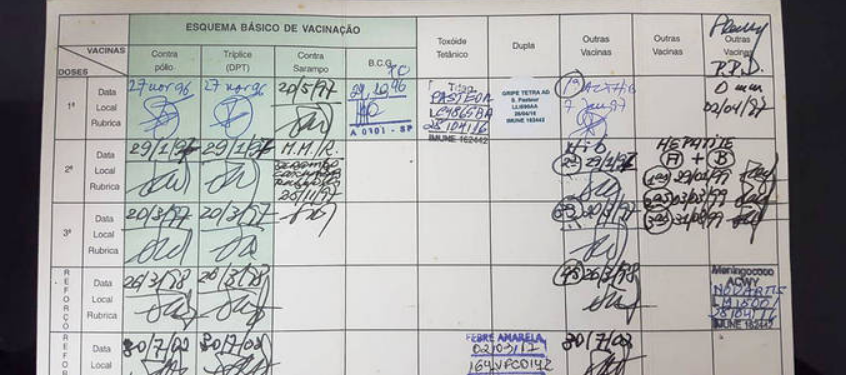 ESQUEMA BÁSICO DE VACINAÇÃO
VACINAS
DOSES
Contra pólio
Tríplice (DPT)
Contra Sarampo
B.C.G.
Toxóide Tetânico
Dupla
Outras Vacinas
Outras Vacinas
Outras Vacinas
P.P.D.
1ª
Data
Local
Rubrica
27 nov 96
27 nov 96
20/5/97
PASTEUR
28/04/16
IMUNE 162442
GRIPE TETRA AD
S. Pasteur
28/04/16
IMUNE 162442
1ª
7 jan 97
A 0101 - SP
0 mm
02/04/97
2ª
Data
Local
Rubrica
29/1/97
29/1/97
M.M.R.
SARAMPO
CAXUMBA
25/11/97
Hib
2ª 29/1/97
HEPATITE
A + B
1ª 29/01/99
2ª 03/03/99
3ª 31/08/99
3ª
Data
Local
Rubrica
20/3/97
20/3/97
20/3/97
REFORÇO
Data
Local
Rubrica
26/3/98
26/3/98
26/3/98
Meningococo
ACWY
NOVARTIS
28/04/16
IMUNE 162442
REFOR
Data
Local
30/7/02
30/7/02
FEBRE AMARELA
02/03/17
164VFC014Z
30/7/02